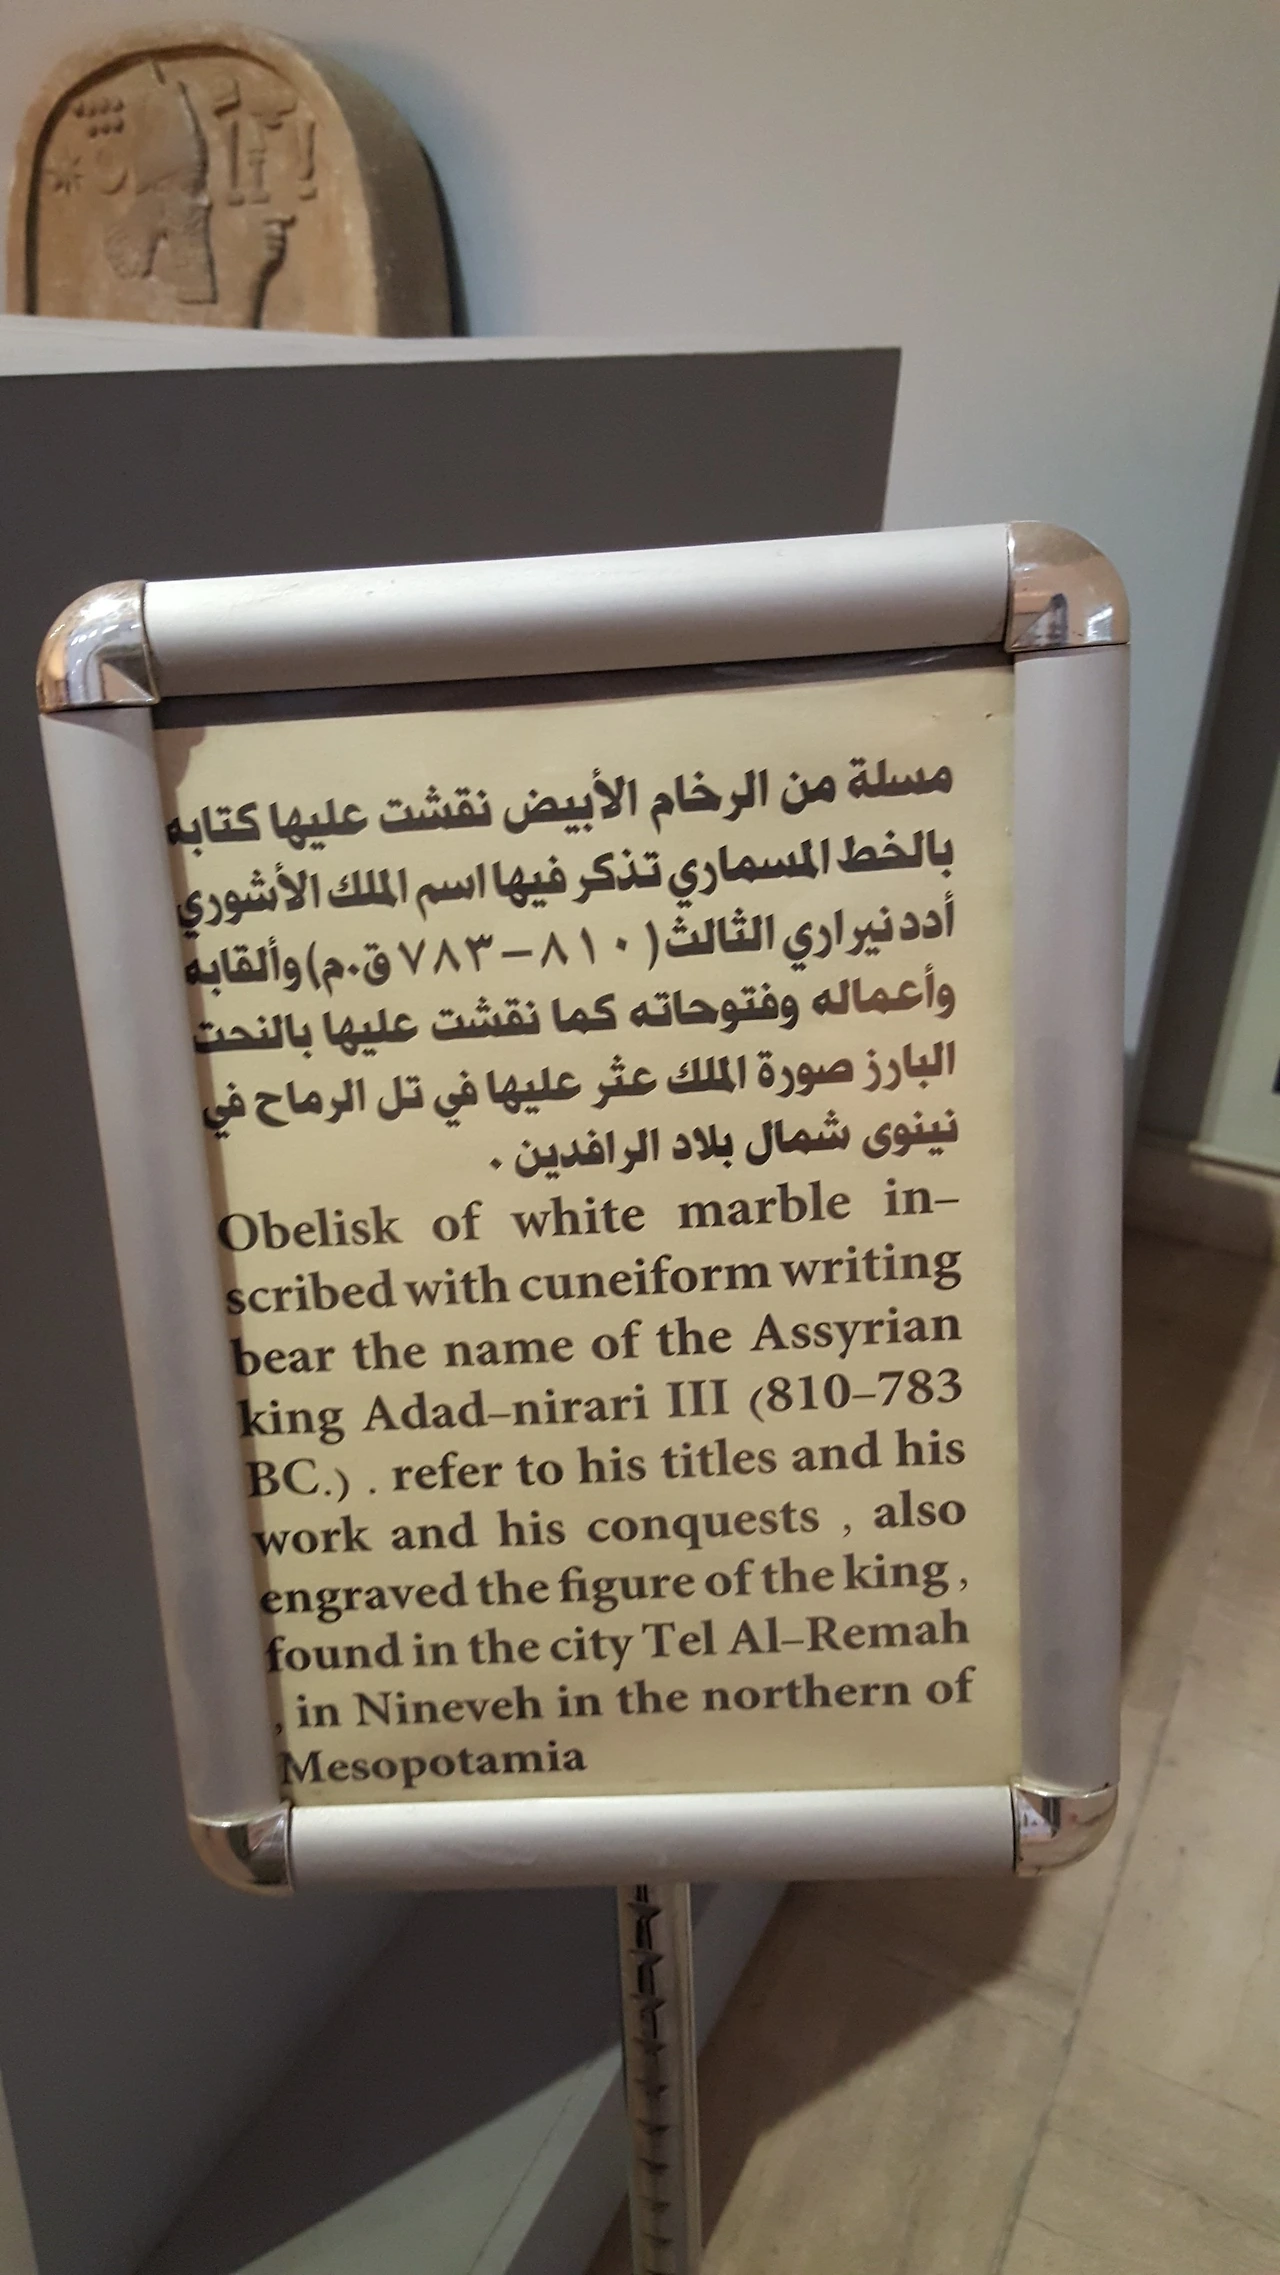 مسلة من الرخام الأبيض نقشت عليها كتابه
بالخط المسماري تذكر فيها اسم الملك الأشوري
أدد نيراري الثالث ( ٨١٠ – ٧٨٣ ق.م) وألقابه
وأعماله وفتوحاته كما نقشت عليها بالنحت
البارز صورة الملك عثر عليها في تل الرماح في
نينوى شمال بلاد الرافدين .
Obelisk of white marble in–
scribed with cuneiform writing
bear the name of the Assyrian
king Adad–nirari III (810–783
BC.) . refer to his titles and his
work and his conquests , also
engraved the figure of the king ,
found in the city Tel Al–Remah
, in Nineveh in the northern of
Mesopotamia